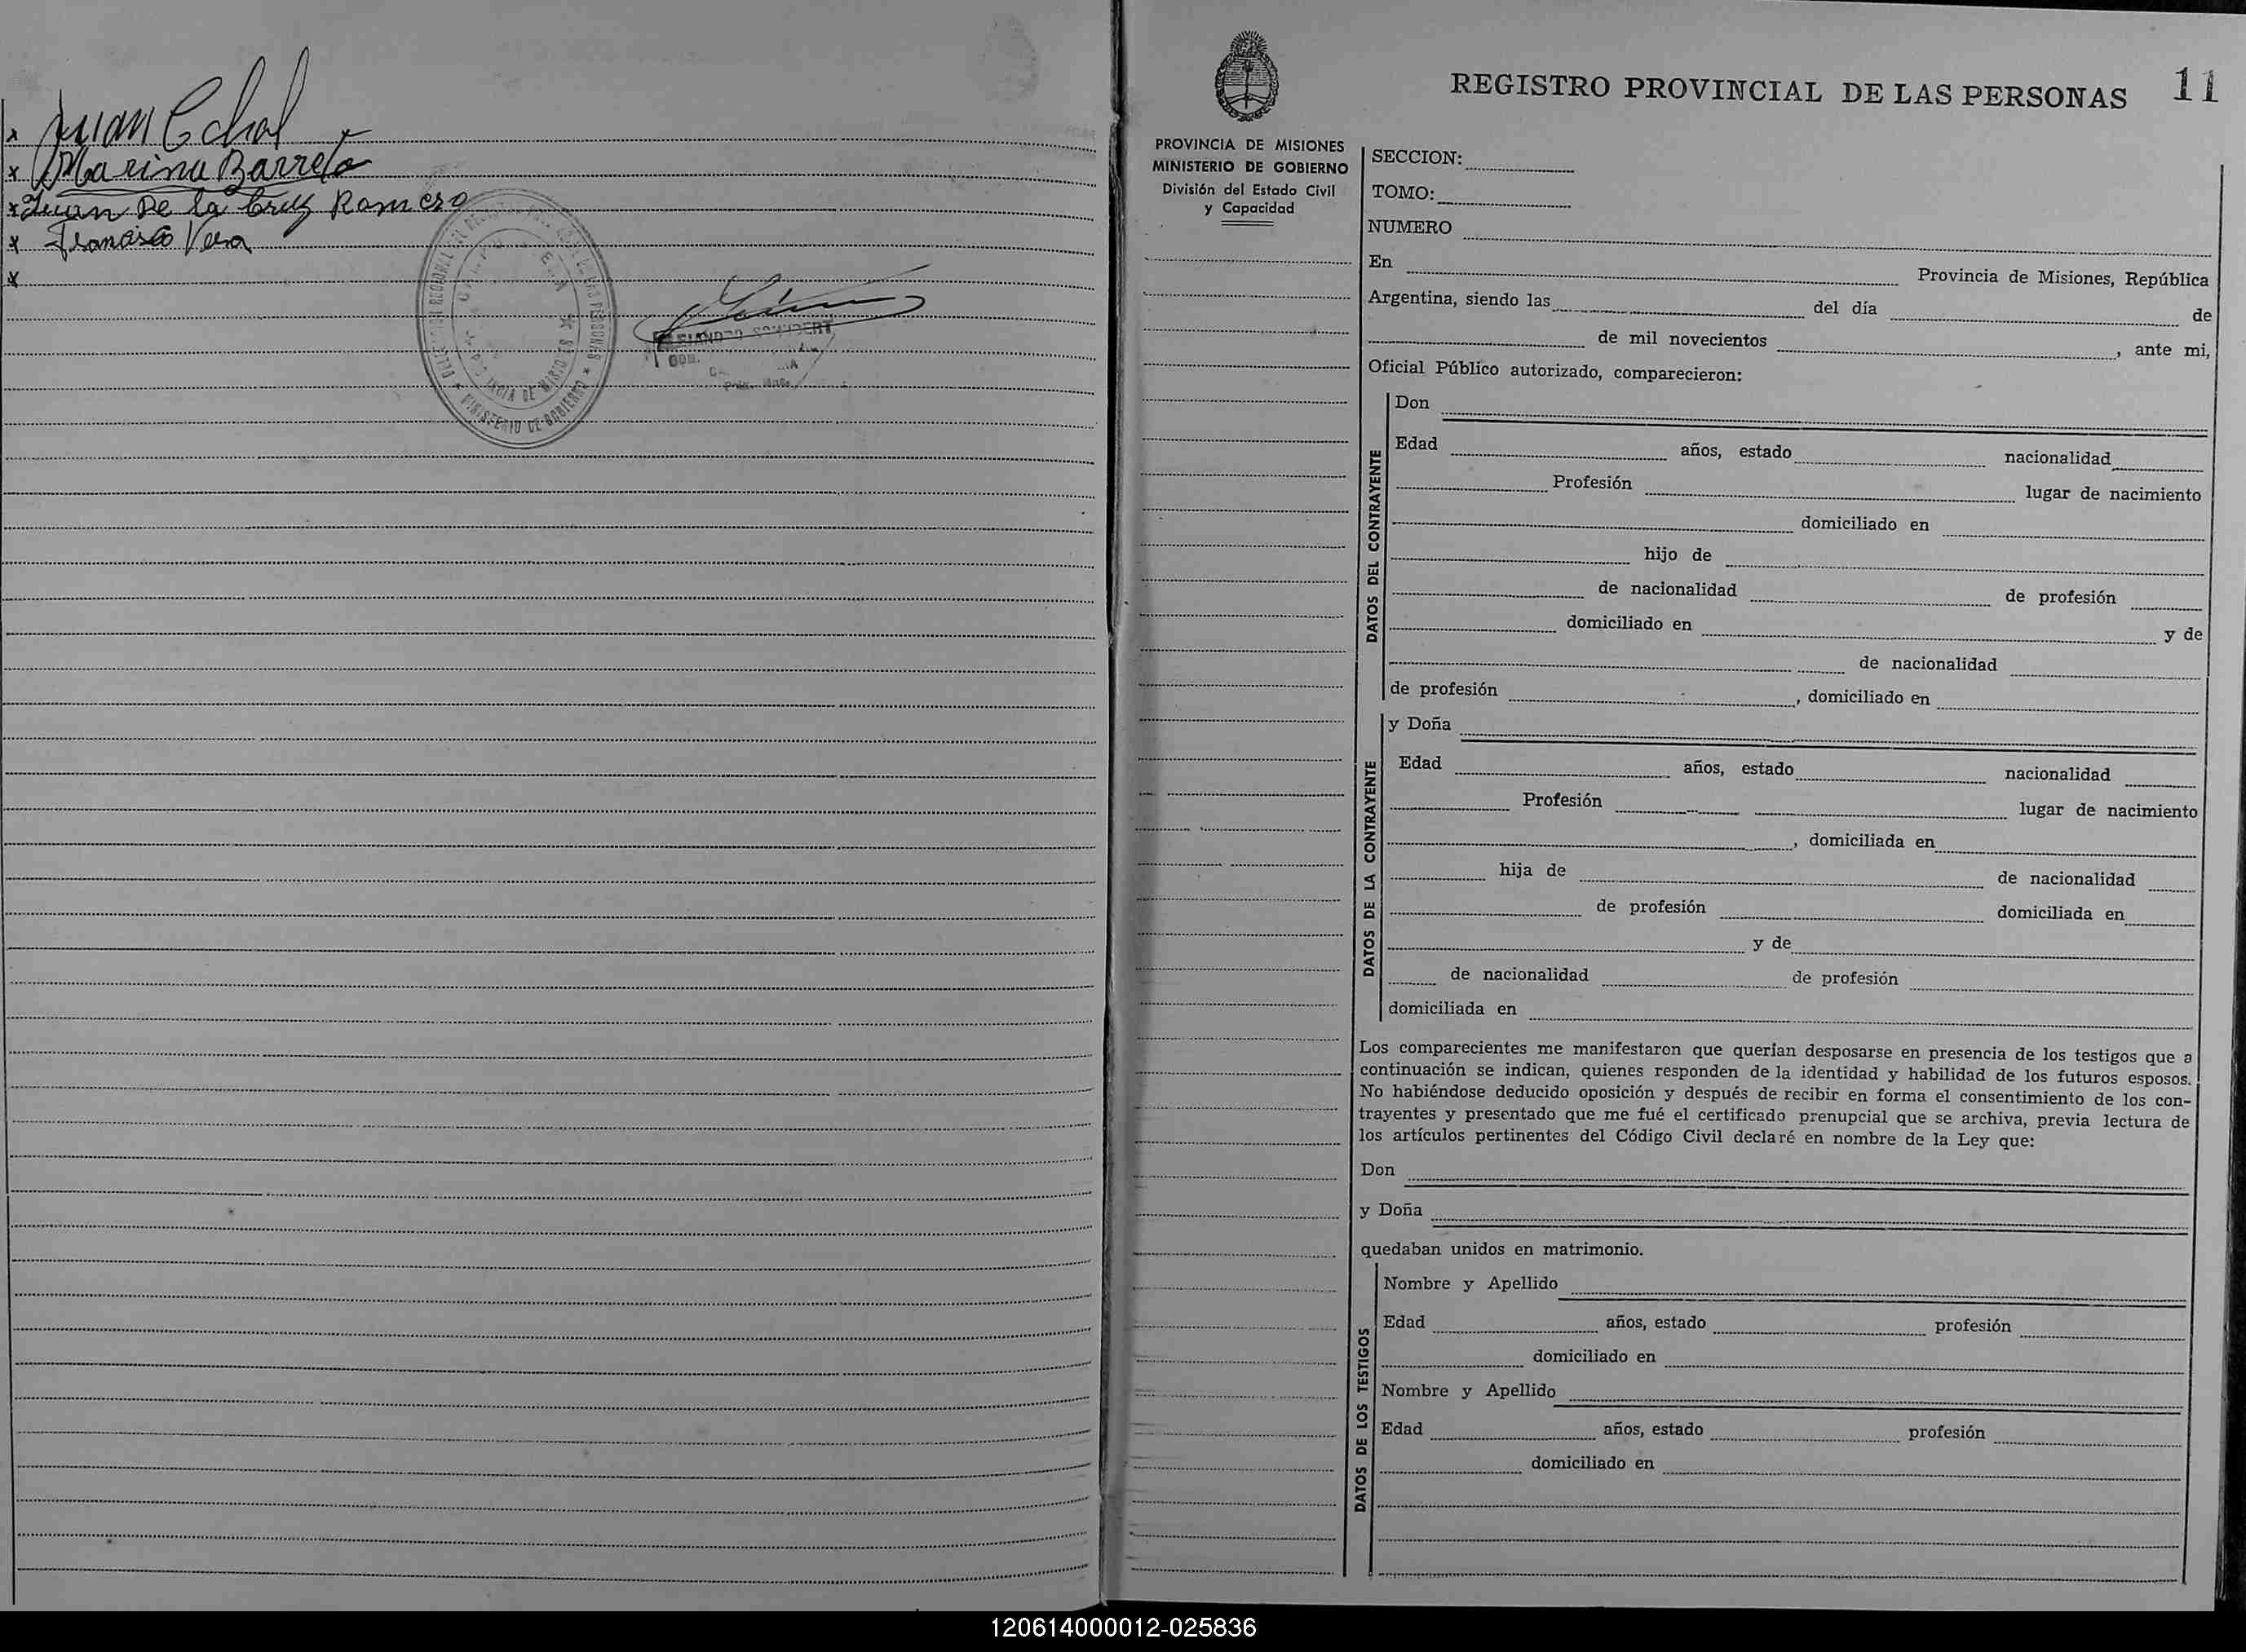 x Juan
x Marina Barreto
x Juan De la Cruz Romero
x Francisco Vera
x
MINISTERIO DE GOBIERNO
REGISTRO PROVINCIAL DE LAS PERSONAS 11
PROVINCIA DE MISIONES
MINISTERIO DE GOBIERNO
División del Estado Civil
y Capacidad
SECCION:
TOMO:
NUMERO
En Provincia de Misiones, República
Argentina, siendo las del día de
de mil novecientos , ante mi,
Oficial Público autorizado, comparecieron:
DATOS DEL CONTRAYENTE
Don
Edad años, estado nacionalidad
Profesión lugar de nacimiento
domiciliado en
hijo de
de nacionalidad de profesión
domiciliado en y de
de nacionalidad
de profesión , domiciliado en
DATOS DE LA CONTRAYENTE
y Doña
Edad años, estado nacionalidad
Profesión lugar de nacimiento
, domiciliada en
hija de de nacionalidad
de profesión domiciliada en
y de
de nacionalidad de profesión
domiciliada en
Los comparecientes me manifestaron que querían desposarse en presencia de los testigos que a
continuación se indican, quienes responden de la identidad y habilidad de los futuros esposos.
No habiéndose deducido oposición y después de recibir en forma el consentimiento de los con-
trayentes y presentado que me fué el certificado prenupcial que se archiva, previa lectura de
los artículos pertinentes del Código Civil declaré en nombre de la Ley que:
Don
y Doña
quedaban unidos en matrimonio.
DATOS DE LOS TESTIGOS
Nombre y Apellido
Edad años, estado profesión
domiciliado en
Nombre y Apellido
Edad años, estado profesión
domiciliado en
120614000012-025836